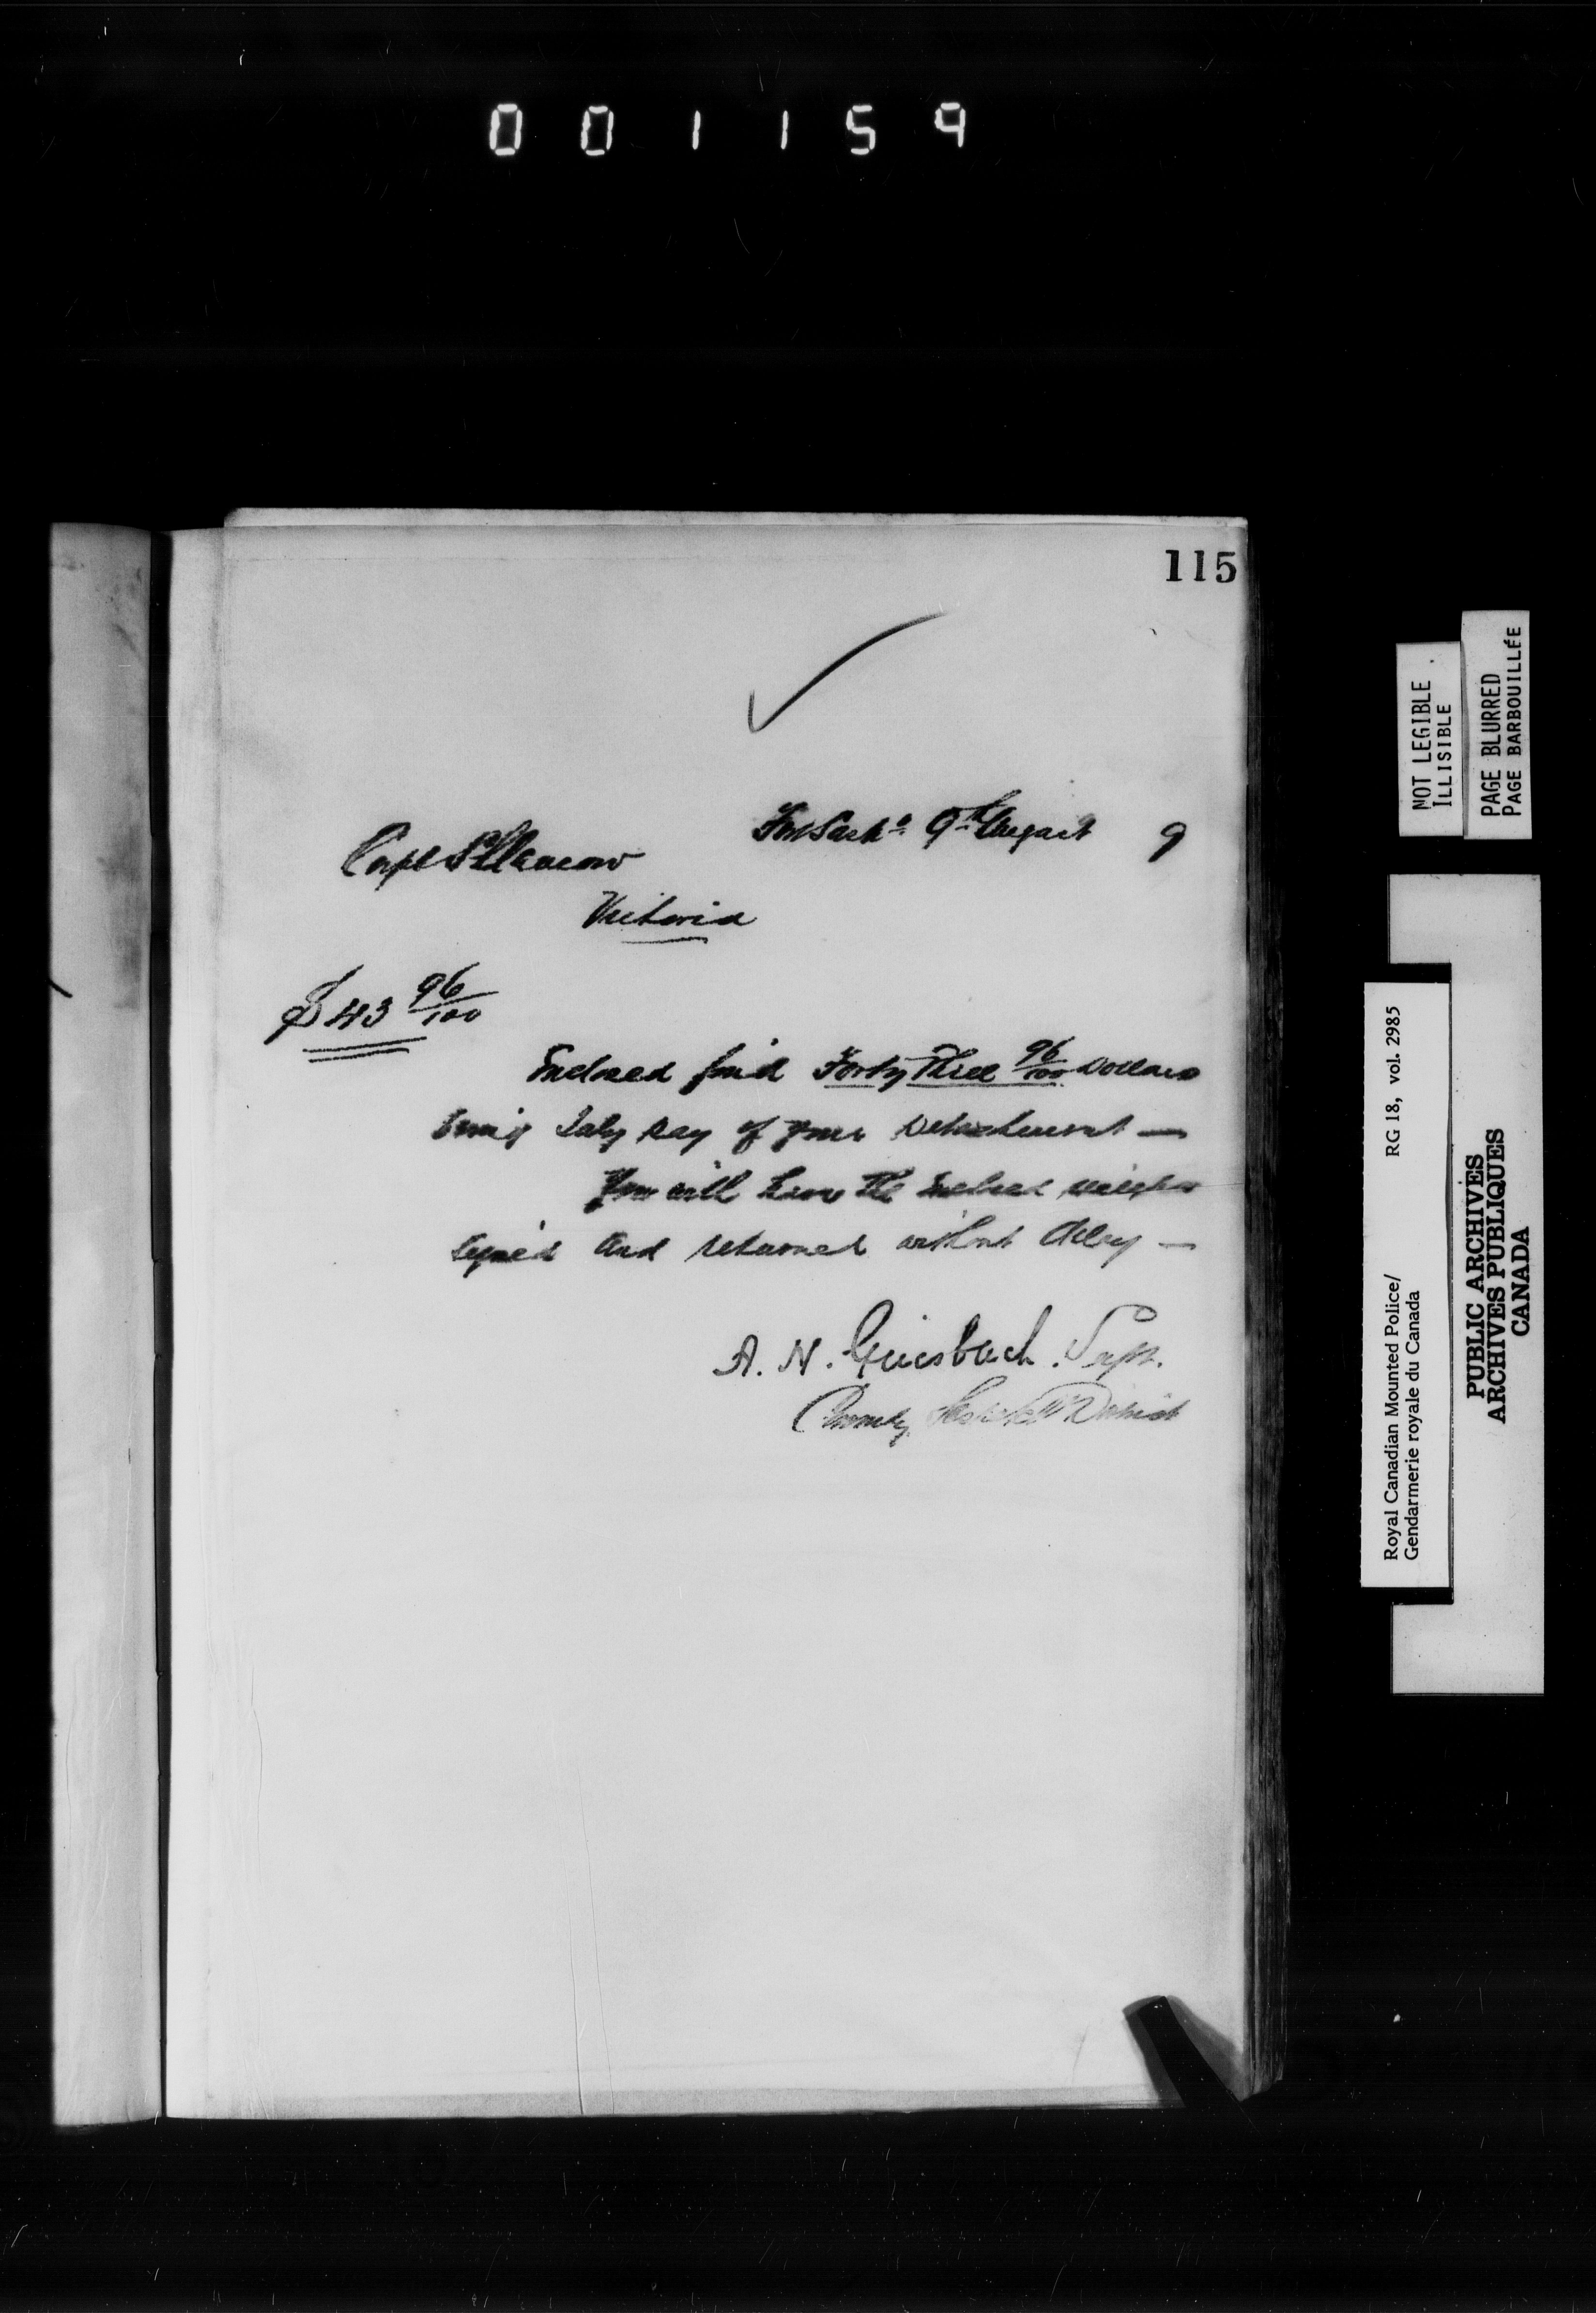 001159
115
Fort Sask<sup>n</sup> 9<sup>th</sup> August 9
Corpl
Victoria
$43 96/100
Enclosed find Forty Three 96/100 Dollars
being July pay of your Detachment —
You will have the Enclosed
signed and returned without delay —
A. H. Griesbach. Supt.
Commdg District
NOT LEGIBLE
ILLISIBLE
PAGE BLURRED
PAGE BARBOUILLÉE
Royal Canadian Mounted Police/ RG 18, vol. 2985
Gendarmerie royale du Canada
PUBLIC ARCHIVES
ARCHIVES PUBLIQUES
CANADA